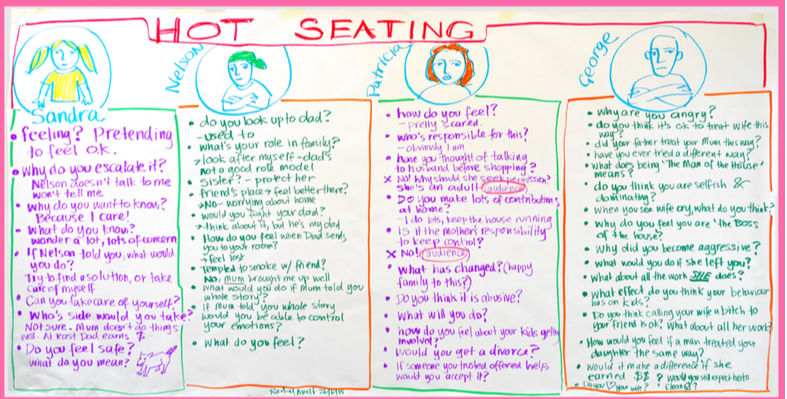 HOT SEATING
Sandra
• feeling? Pretending
to feel ok.
• Why do you escalate it?
Nelson doesn't talk to me
won't tell me.
• Why do you want to know?
Because I care!
• What do you know?
wonder a lot, lots of concern
• If Nelson told you, what would
you do?
Try to find a solution, or take
care of myself
• Can you take care of yourself?
• Who's side would you take?
Not sure. Mum doesn't do things
well. At least Dad earns $
• Do you feel safe?
What do you mean?
Nelson
• do you look up to dad?
- used to
• what's your role in family?
→ look after myself - dad's
not a good role model
• Sister? - protect her
• friend's place → feel better there?
→ No - worrying about home
• would you fight your dad?
→ think about it, but he's my dad
• How do you feel when Dad sends
you to your room?
→ feel lost
• Tempted to smoke w/ friend?
No, mum brought me up well
• What would you do if Mum told you
whole story?
• If Mum told you whole story
would you be able to control
your emotions?
• what do you feel?
Patricia
• how do you feel?
- pretty scared
• who's responsible for this?
- obviously I am
• have you thought of talking
to husband before shopping?
x No! Why should she seek permission?
She's an adult audience
• Do you make lots of contributions
at home?
I do lots, keep the house running
• Is it the mother's responsibility
to keep control?
x No! audience
• What has changed? (happy
family to this?)
• Do you think it is abusive?
• What will you do?
• how do you feel about your kids getting
involved?
• Would you get a divorce?
• If someone you trusted offered help,
would you accept it?
George
• Why are you angry?
• do you think it's ok to treat wife this
way?
• did your father treat your Mum this way?
• have you ever tried a different way?
• what does being 'The Man of the House'
means?
• do you think you are selfish &
dominating?
• When you see wife cry, what do you think?
• Why do you feel you are 'the Boss
of the house?
• Why did you become aggressive?
• what would you do if she left you?
• What about all the work SHE does?
• What effect do you think your behaviour
has on kids?
• Do you think calling your wife a bitch to
your friend is ok? What about all her work?
• How would you feel if a man treated you
daughter the same way?
• would it make a difference if she
earned $$? would you still expect her to
clean?
• Do you ♡ your wife?